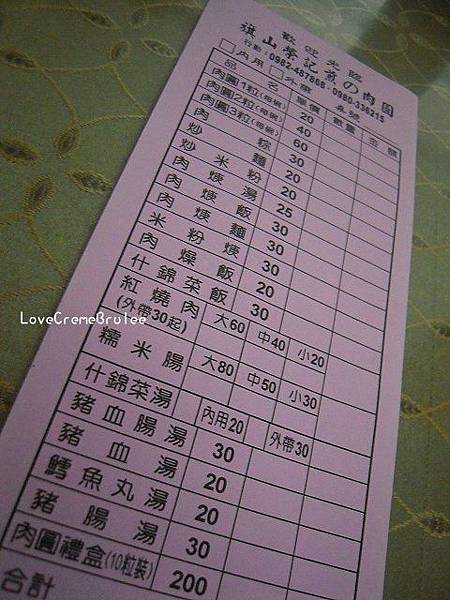 歡迎光臨
旗山學記煮の肉圓
行動:0982-487668‧0980-336215
□內用 □外帶 桌號
品名 單價 數量 金額
肉圓1粒(每碗) 20
肉圓2粒(每碗) 40
肉圓3粒(每碗) 60
肉粽 30
炒麵 20
炒米粉 20
肉焿湯 25
肉焿飯 30
肉焿麵 30
米粉焿 30
肉燥飯 20
什錦菜飯 30
紅燒肉 大60 中40 小20
(外帶30起)
糯米腸 大80 中50 小30
什錦菜湯 內用20 外帶30
豬血腸湯 30
豬血湯 20
鱈魚丸湯 20
豬腸湯 30
肉圓禮盒(10粒裝) 200
合計
LoveCremeBrulee